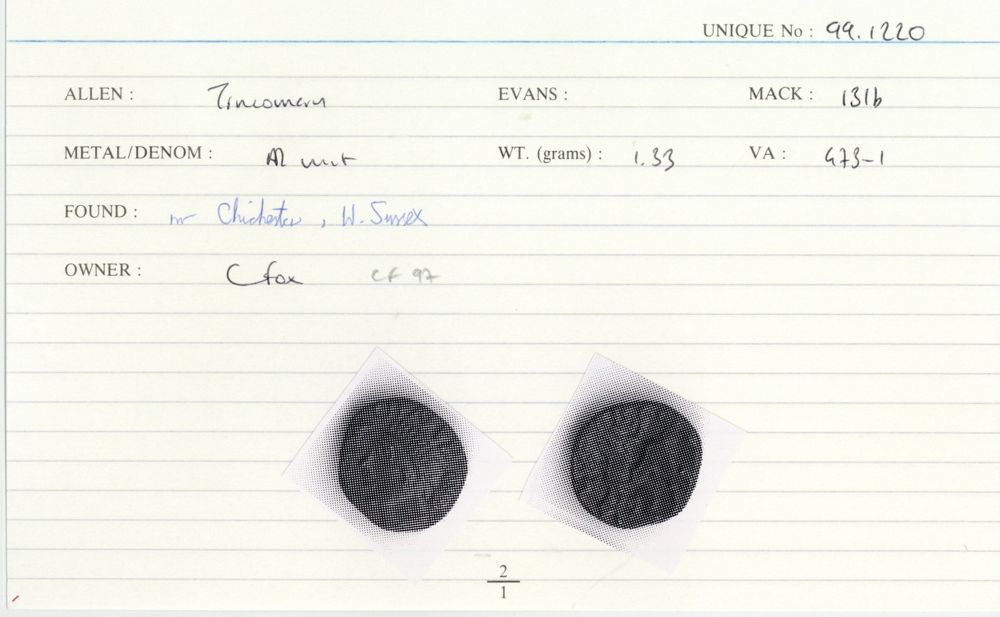 UNIQUE No : 99.1220
ALLEN : Tincomarus EVANS : MACK : 131b
METAL/DENOM : AR unit WT. (grams) : 1.33 VA : 473-1
FOUND : nr Chichester, W. Sussex
OWNER : C Fox CF 97
2
1